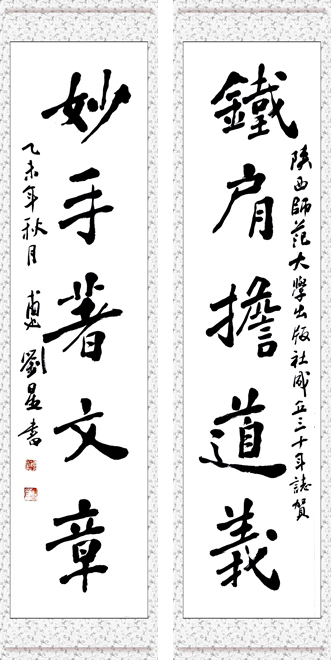 鐵肩擔道義
陝西師范大學出版社成立三十年誌賀
妙手著文章
乙未年秋月
劉星書